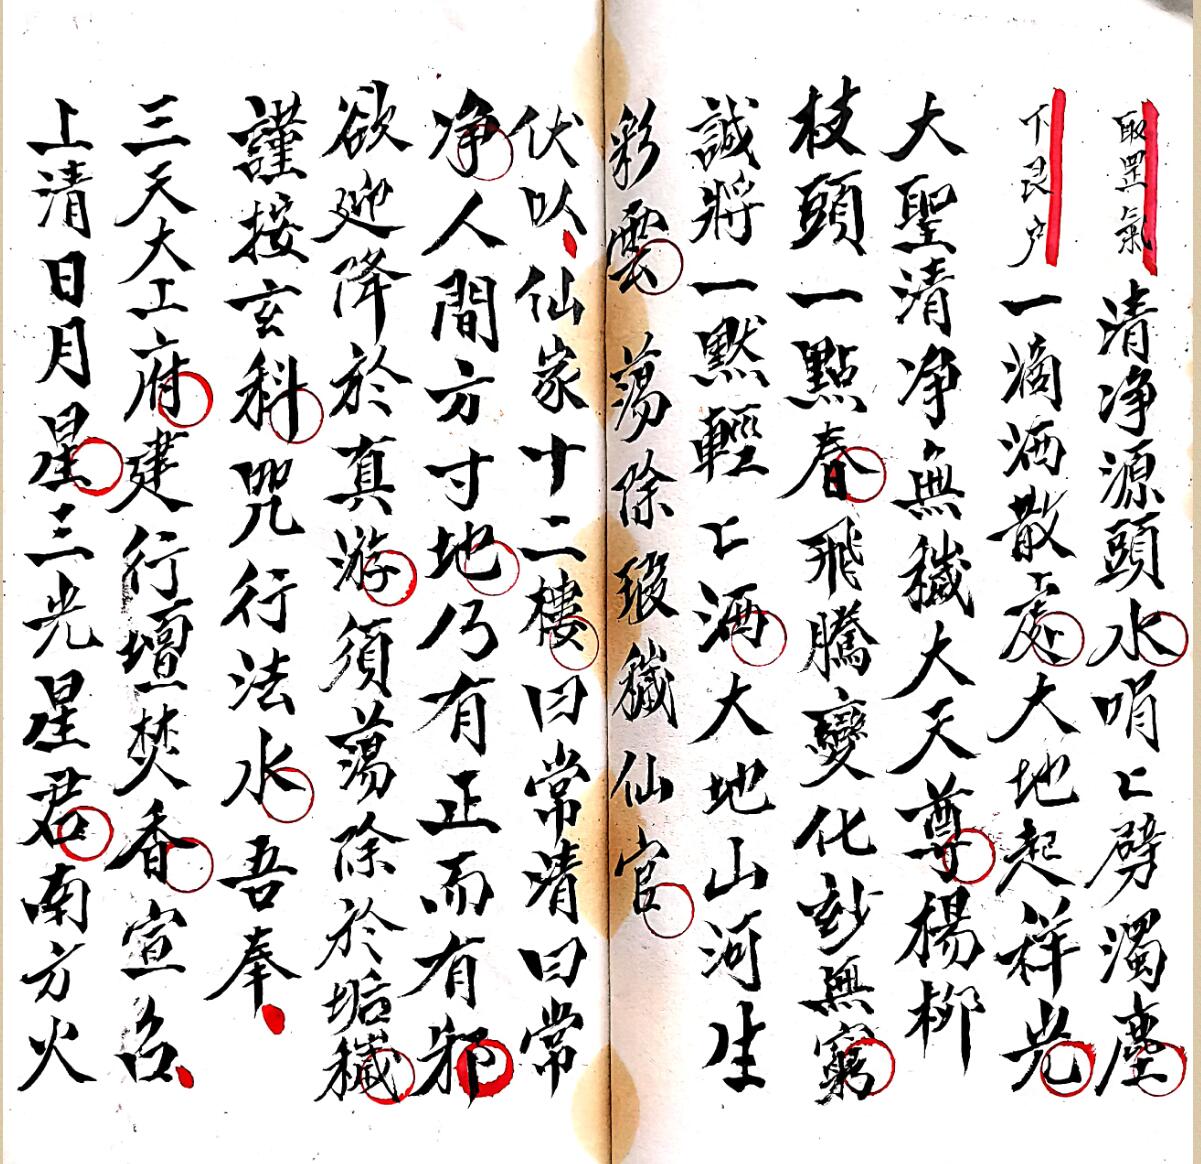 取罡氣 清净源頭水涓〻劈濁塵
下艮户 一滴洒散〻處大地起祥光
大聖清净無穢大天尊楊柳
枝頭一點春飛騰變化玅無窮
誠將一點輕〻洒大地山河生
彩雲蕩除瑕穢仙官
伏以仙家十二樓曰常清曰常
净人間方寸地乃有正而有邪
欲迎降於真游須蕩除於垢穢
謹按玄科咒行法水吾奉
三天大工府建行壇焚香宣名
上清日月星三光星君南方火